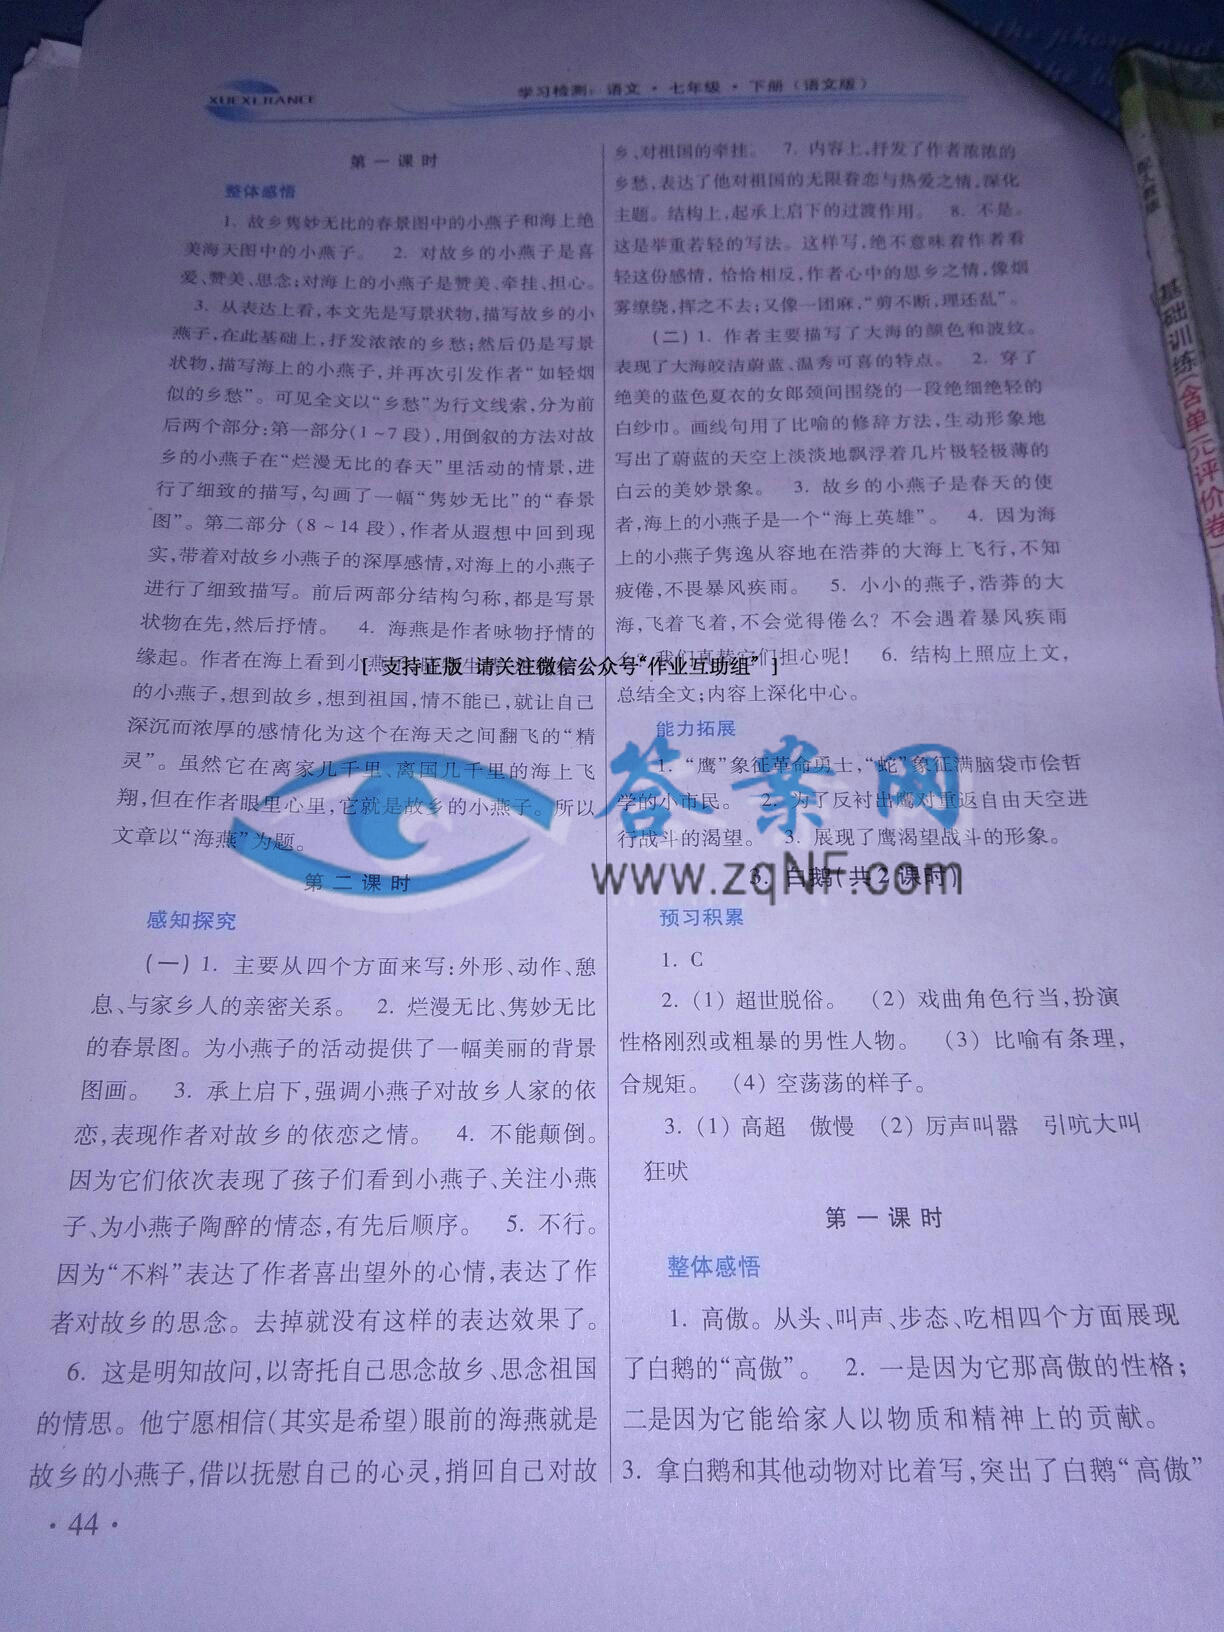 XUEXI JIANCE
学习检测：语文·七年级·下册（语文版）
第一课时
整体感悟
1. 故乡隽妙无比的春景图中的小燕子和海上绝
美海天图中的小燕子。 2. 对故乡的小燕子是喜
爱、赞美、思念；对海上的小燕子是赞美、牵挂、担心。
3. 从表达上看，本文先是写景状物，描写故乡的小
燕子，在此基础上，抒发浓浓的乡愁；然后仍是写景
状物，描写海上的小燕子，并再次引发作者“如轻烟
似的乡愁”。可见全文以“乡愁”为行文线索，分为前
后两个部分：第一部分(1～7段)，用倒叙的方法对故
乡的小燕子在“烂漫无比的春天”里活动的情景，进
行了细致的描写，勾画了一幅“隽妙无比”的“春景
图”。第二部分（8～14段），作者从遐想中回到现
实，带着对故乡小燕子的深厚感情，对海上的小燕子
进行了细致描写。前后两部分结构匀称，都是写景
状物在先，然后抒情。 4. 海燕是作者咏物抒情的
缘起。作者在海上看到小燕
的小燕子，想到故乡，想到祖国，情不能已，就让自己
深沉而浓厚的感情化为这个在海天之间翻飞的“精
灵”。虽然它在离家几千里、离国几千里的海上飞
翔，但在作者眼里心里，它就是故乡的小燕子。所以
文章以“海燕”为题。
第二课时
感知探究
（一）1. 主要从四个方面来写：外形、动作、憩
息、与家乡人的亲密关系。 2. 烂漫无比、隽妙无比
的春景图。为小燕子的活动提供了一幅美丽的背景
图画。 3. 承上启下，强调小燕子对故乡人家的依
恋，表现作者对故乡的依恋之情。 4. 不能颠倒。
因为它们依次表现了孩子们看到小燕子、关注小燕
子、为小燕子陶醉的情态，有先后顺序。 5. 不行。
因为“不料”表达了作者喜出望外的心情，表达了作
者对故乡的思念。去掉就没有这样的表达效果了。
6. 这是明知故问，以寄托自己思念故乡、思念祖国
的情思。他宁愿相信(其实是希望)眼前的海燕就是
故乡的小燕子，借以抚慰自己的心灵，捎回自己对故
·44·
乡、对祖国的牵挂。 7. 内容上，抒发了作者浓浓的
乡愁，表达了他对祖国的无限眷恋与热爱之情，深化
主题。结构上，起承上启下的过渡作用。 8. 不是。
这是举重若轻的写法。这样写，绝不意味着作者看
轻这份感情，恰恰相反，作者心中的思乡之情，像烟
雾缭绕，挥之不去；又像一团麻，“剪不断，理还乱”。
（二）1. 作者主要描写了大海的颜色和波纹。
表现了大海皎洁蔚蓝、温秀可喜的特点。 2. 穿了
绝美的蓝色夏衣的女郎颈间围绕的一段绝细绝轻的
白纱巾。画线句用了比喻的修辞方法，生动形象地
写出了蔚蓝的天空上淡淡地飘浮着几片极轻极薄的
白云的美妙景象。 3. 故乡的小燕子是春天的使
者，海上的小燕子是一个“海上英雄”。 4. 因为海
上的小燕子隽逸从容地在浩莽的大海上飞行，不知
疲倦，不畏暴风疾雨。 5. 小小的燕子，浩莽的大
海，飞着飞着，不会觉得倦么？不会遇着暴风疾雨
么？我们真替它们担心呢！ 6. 结构上照应上文，
总结全文；内容上深化中心。
能力拓展
1. “鹰”象征革命勇士，“蛇”象征满脑袋市侩哲
学的小市民。 2. 为了反衬出鹰对重返自由天空进
行战斗的渴望。 3. 展现了鹰渴望战斗的形象。
3. 白鹅（共2课时）
预习积累
1. C
2. (1) 超世脱俗。 (2) 戏曲角色行当，扮演
性格刚烈或粗暴的男性人物。 (3) 比喻有条理，
合规矩。 (4) 空荡荡的样子。
3. (1) 高超 傲慢 (2) 厉声叫嚣 引吭大叫
狂吠
第一课时
整体感悟
1. 高傲。从头、叫声、步态、吃相四个方面展现
了白鹅的“高傲”。 2. 一是因为它那高傲的性格；
二是因为它能给家人以物质和精神上的贡献。
3. 拿白鹅和其他动物对比着写，突出了白鹅“高傲”
[ 支持正版 请关注微信公众号“作业互助组” ]
答案网
www.zqNF.com
基础训练(含单元评价卷)